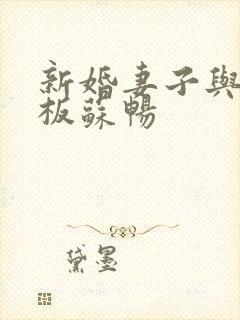 新婚妻子與
板蘇暢
黛墨